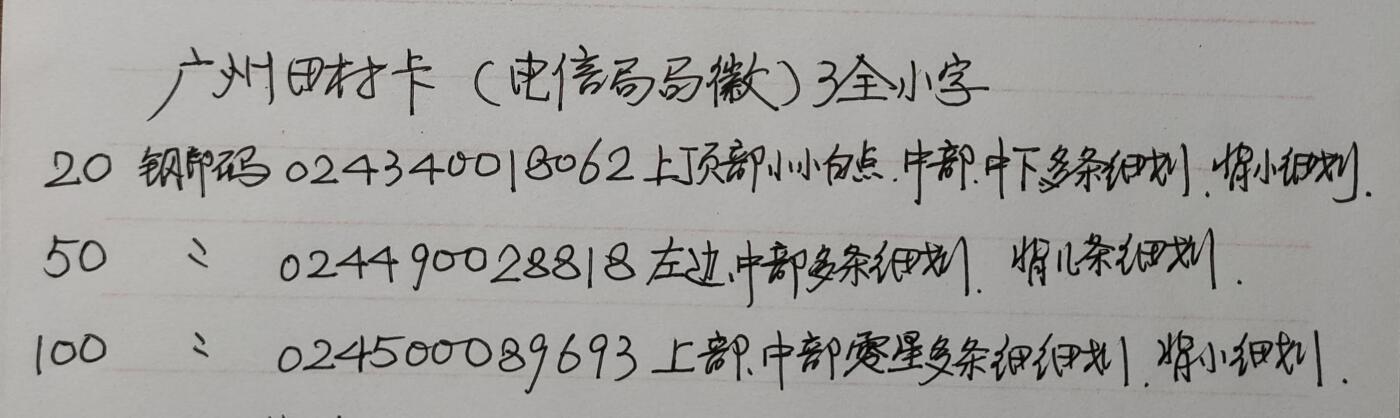 广州田村卡(电信局局徽)3全小字
20 钢印码 024340018062 上顶部小小白点.中部.中下多条细划.背小细划.
50 〃 024490028818 左边、中部多条细划.背几条细划.
100 〃 024500089693 上部.中部零星多条细细划.背小细划.